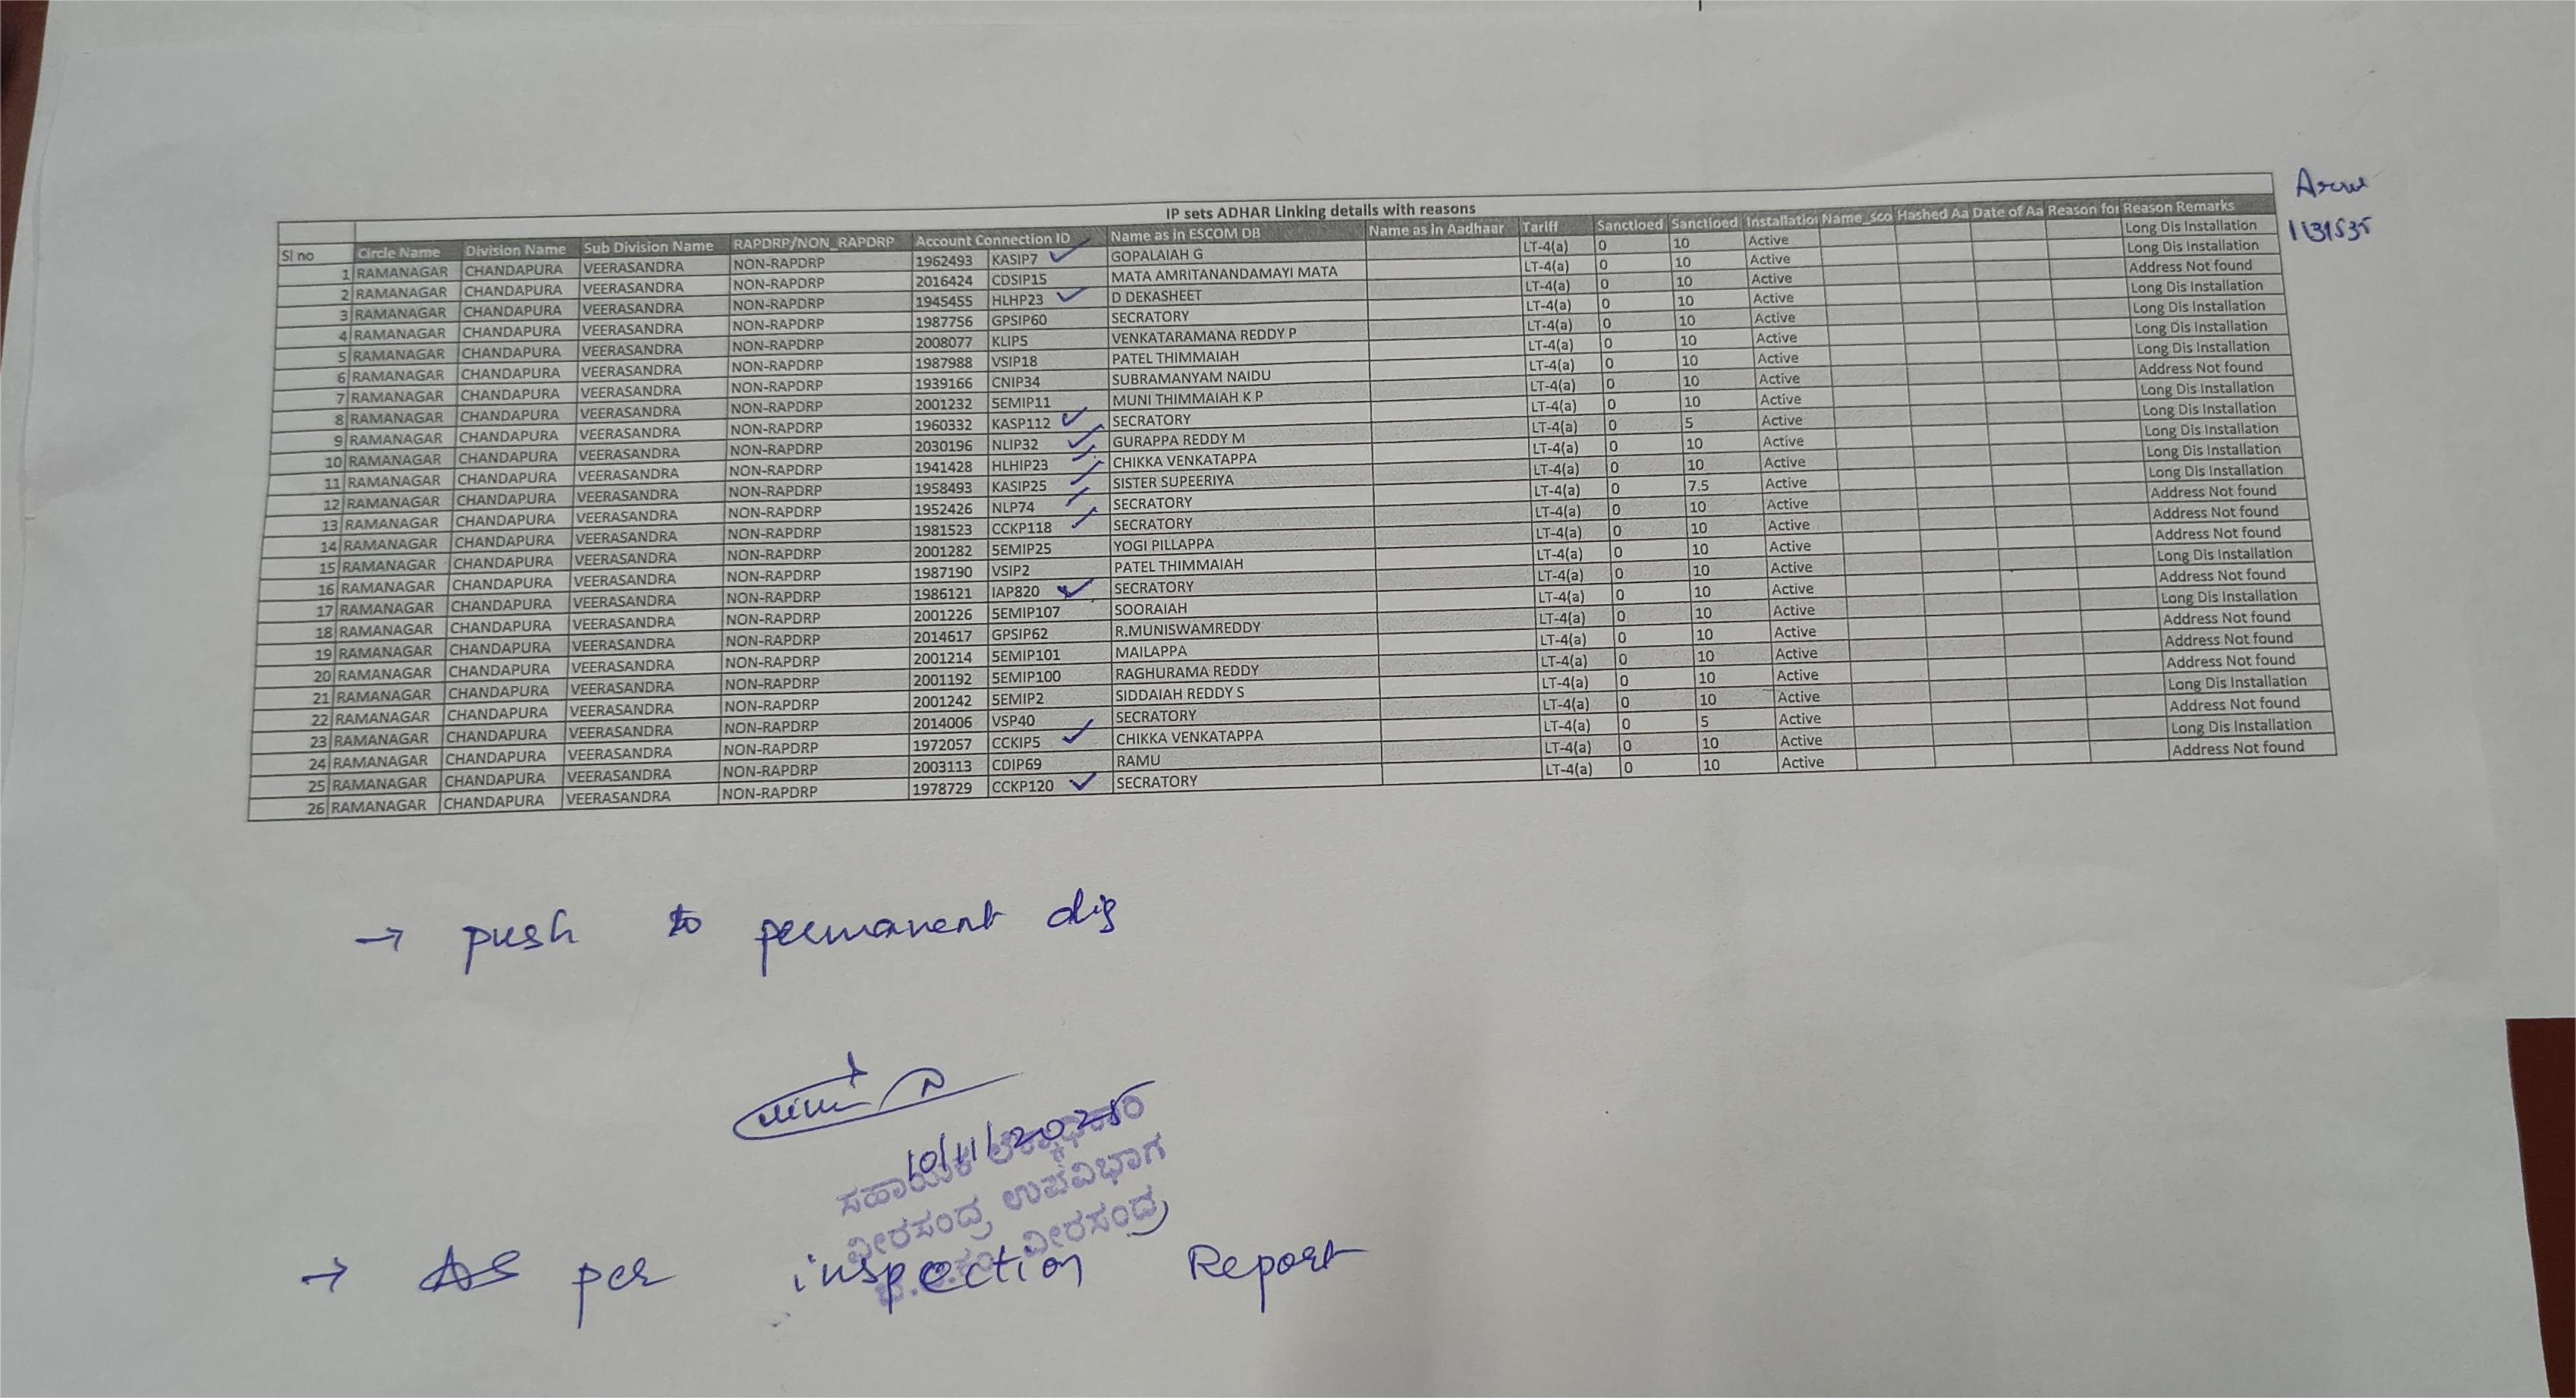 IP sets ADHAR Linking details with reasons
Sl no Circle Name Division Name Sub Division Name RAPDRP/NON_RAPDRP Account Connection ID Name as in ESCOM DB Name as in Aadhaar Tariff Sanctioed Sanctioed Installatio Name_sco Hashed Aa Date of Aa Reason for Reason Remarks
1 RAMANAGAR CHANDAPURA VEERASANDRA NON-RAPDRP 1962493 KASIP7 GOPALAIAH G LT-4(a) 0 10 Active Long Dis Installation
2 RAMANAGAR CHANDAPURA VEERASANDRA NON-RAPDRP 2016424 CDSIP15 MATA AMRITANANDAMAYI MATA LT-4(a) 0 10 Active Long Dis Installation
3 RAMANAGAR CHANDAPURA VEERASANDRA NON-RAPDRP 1945455 HLHP23 D DEKASHEET LT-4(a) 0 10 Active Address Not found
4 RAMANAGAR CHANDAPURA VEERASANDRA NON-RAPDRP 1987756 GPSIP60 SECRATORY LT-4(a) 0 10 Active Long Dis Installation
5 RAMANAGAR CHANDAPURA VEERASANDRA NON-RAPDRP 2008077 KLIP5 VENKATARAMANA REDDY P LT-4(a) 0 10 Active Long Dis Installation
6 RAMANAGAR CHANDAPURA VEERASANDRA NON-RAPDRP 1987988 VSIP18 PATEL THIMMAIAH LT-4(a) 0 10 Active Long Dis Installation
7 RAMANAGAR CHANDAPURA VEERASANDRA NON-RAPDRP 1939166 CNIP34 SUBRAMANYAM NAIDU LT-4(a) 0 10 Active Long Dis Installation
8 RAMANAGAR CHANDAPURA VEERASANDRA NON-RAPDRP 2001232 SEMIP11 MUNI THIMMAIAH K P LT-4(a) 0 10 Active Address Not found
9 RAMANAGAR CHANDAPURA VEERASANDRA NON-RAPDRP 1960332 KASP112 SECRATORY LT-4(a) 0 10 Active Long Dis Installation
10 RAMANAGAR CHANDAPURA VEERASANDRA NON-RAPDRP 2030196 NLIP32 GURAPPA REDDY M LT-4(a) 0 5 Active Long Dis Installation
11 RAMANAGAR CHANDAPURA VEERASANDRA NON-RAPDRP 1941428 HLHIP23 CHIKKA VENKATAPPA LT-4(a) 0 10 Active Long Dis Installation
12 RAMANAGAR CHANDAPURA VEERASANDRA NON-RAPDRP 1958493 KASIP25 SISTER SUPEERIYA LT-4(a) 0 10 Active Long Dis Installation
13 RAMANAGAR CHANDAPURA VEERASANDRA NON-RAPDRP 1952426 NLP74 SECRATORY LT-4(a) 0 7.5 Active Long Dis Installation
14 RAMANAGAR CHANDAPURA VEERASANDRA NON-RAPDRP 1981523 CCKP118 SECRATORY LT-4(a) 0 10 Active Address Not found
15 RAMANAGAR CHANDAPURA VEERASANDRA NON-RAPDRP 2001282 SEMIP25 YOGI PILLAPPA LT-4(a) 0 10 Active Address Not found
16 RAMANAGAR CHANDAPURA VEERASANDRA NON-RAPDRP 1987190 VSIP2 PATEL THIMMAIAH LT-4(a) 0 10 Active Address Not found
17 RAMANAGAR CHANDAPURA VEERASANDRA NON-RAPDRP 1986121 IAP820 SECRATORY LT-4(a) 0 10 Active Long Dis Installation
18 RAMANAGAR CHANDAPURA VEERASANDRA NON-RAPDRP 2001226 SEMIP107 SOORAIAH LT-4(a) 0 10 Active Address Not found
19 RAMANAGAR CHANDAPURA VEERASANDRA NON-RAPDRP 2014617 GPSIP62 R.MUNISWAMREDDY LT-4(a) 0 10 Active Long Dis Installation
20 RAMANAGAR CHANDAPURA VEERASANDRA NON-RAPDRP 2001214 SEMIP101 MAILAPPA LT-4(a) 0 10 Active Address Not found
21 RAMANAGAR CHANDAPURA VEERASANDRA NON-RAPDRP 2001192 SEMIP100 RAGHURAMA REDDY LT-4(a) 0 10 Active Address Not found
22 RAMANAGAR CHANDAPURA VEERASANDRA NON-RAPDRP 2001242 SEMIP2 SIDDAIAH REDDY S LT-4(a) 0 10 Active Address Not found
23 RAMANAGAR CHANDAPURA VEERASANDRA NON-RAPDRP 2014006 VSP40 SECRATORY LT-4(a) 0 10 Active Long Dis Installation
24 RAMANAGAR CHANDAPURA VEERASANDRA NON-RAPDRP 1972057 CCKIP5 CHIKKA VENKATAPPA LT-4(a) 0 5 Active Address Not found
25 RAMANAGAR CHANDAPURA VEERASANDRA NON-RAPDRP 2003113 CDIP69 RAMU LT-4(a) 0 10 Active Long Dis Installation
26 RAMANAGAR CHANDAPURA VEERASANDRA NON-RAPDRP 1978729 CCKP120 SECRATORY LT-4(a) 0 10 Active Address Not found
→ push to permanent dis
10/11/2025
ಸಹಾಯಕ
ವೀರಸಂದ್ರ ಉಪವಿಭಾಗ
ವೀರಸಂದ್ರ
→ As per inspection Report